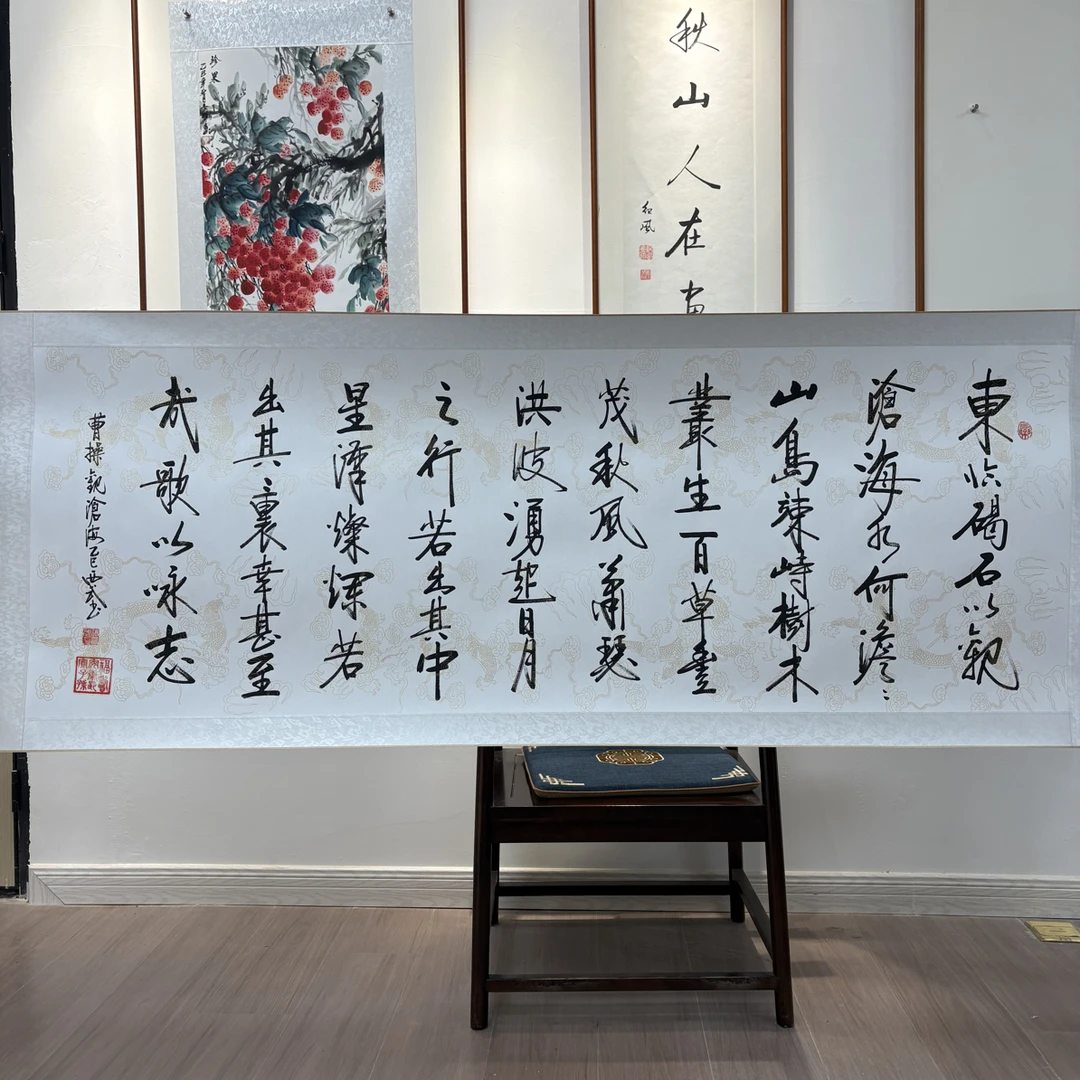 東临碣石以觀
滄海水何澹〻
山島竦峙樹木
叢生百草豐
茂秋風蕭瑟
洪波湧起日月
之行若出其中
星漢燦爛若
出其裏幸甚至
哉歌以咏志
曹操觀滄海
秋山人在
珍果